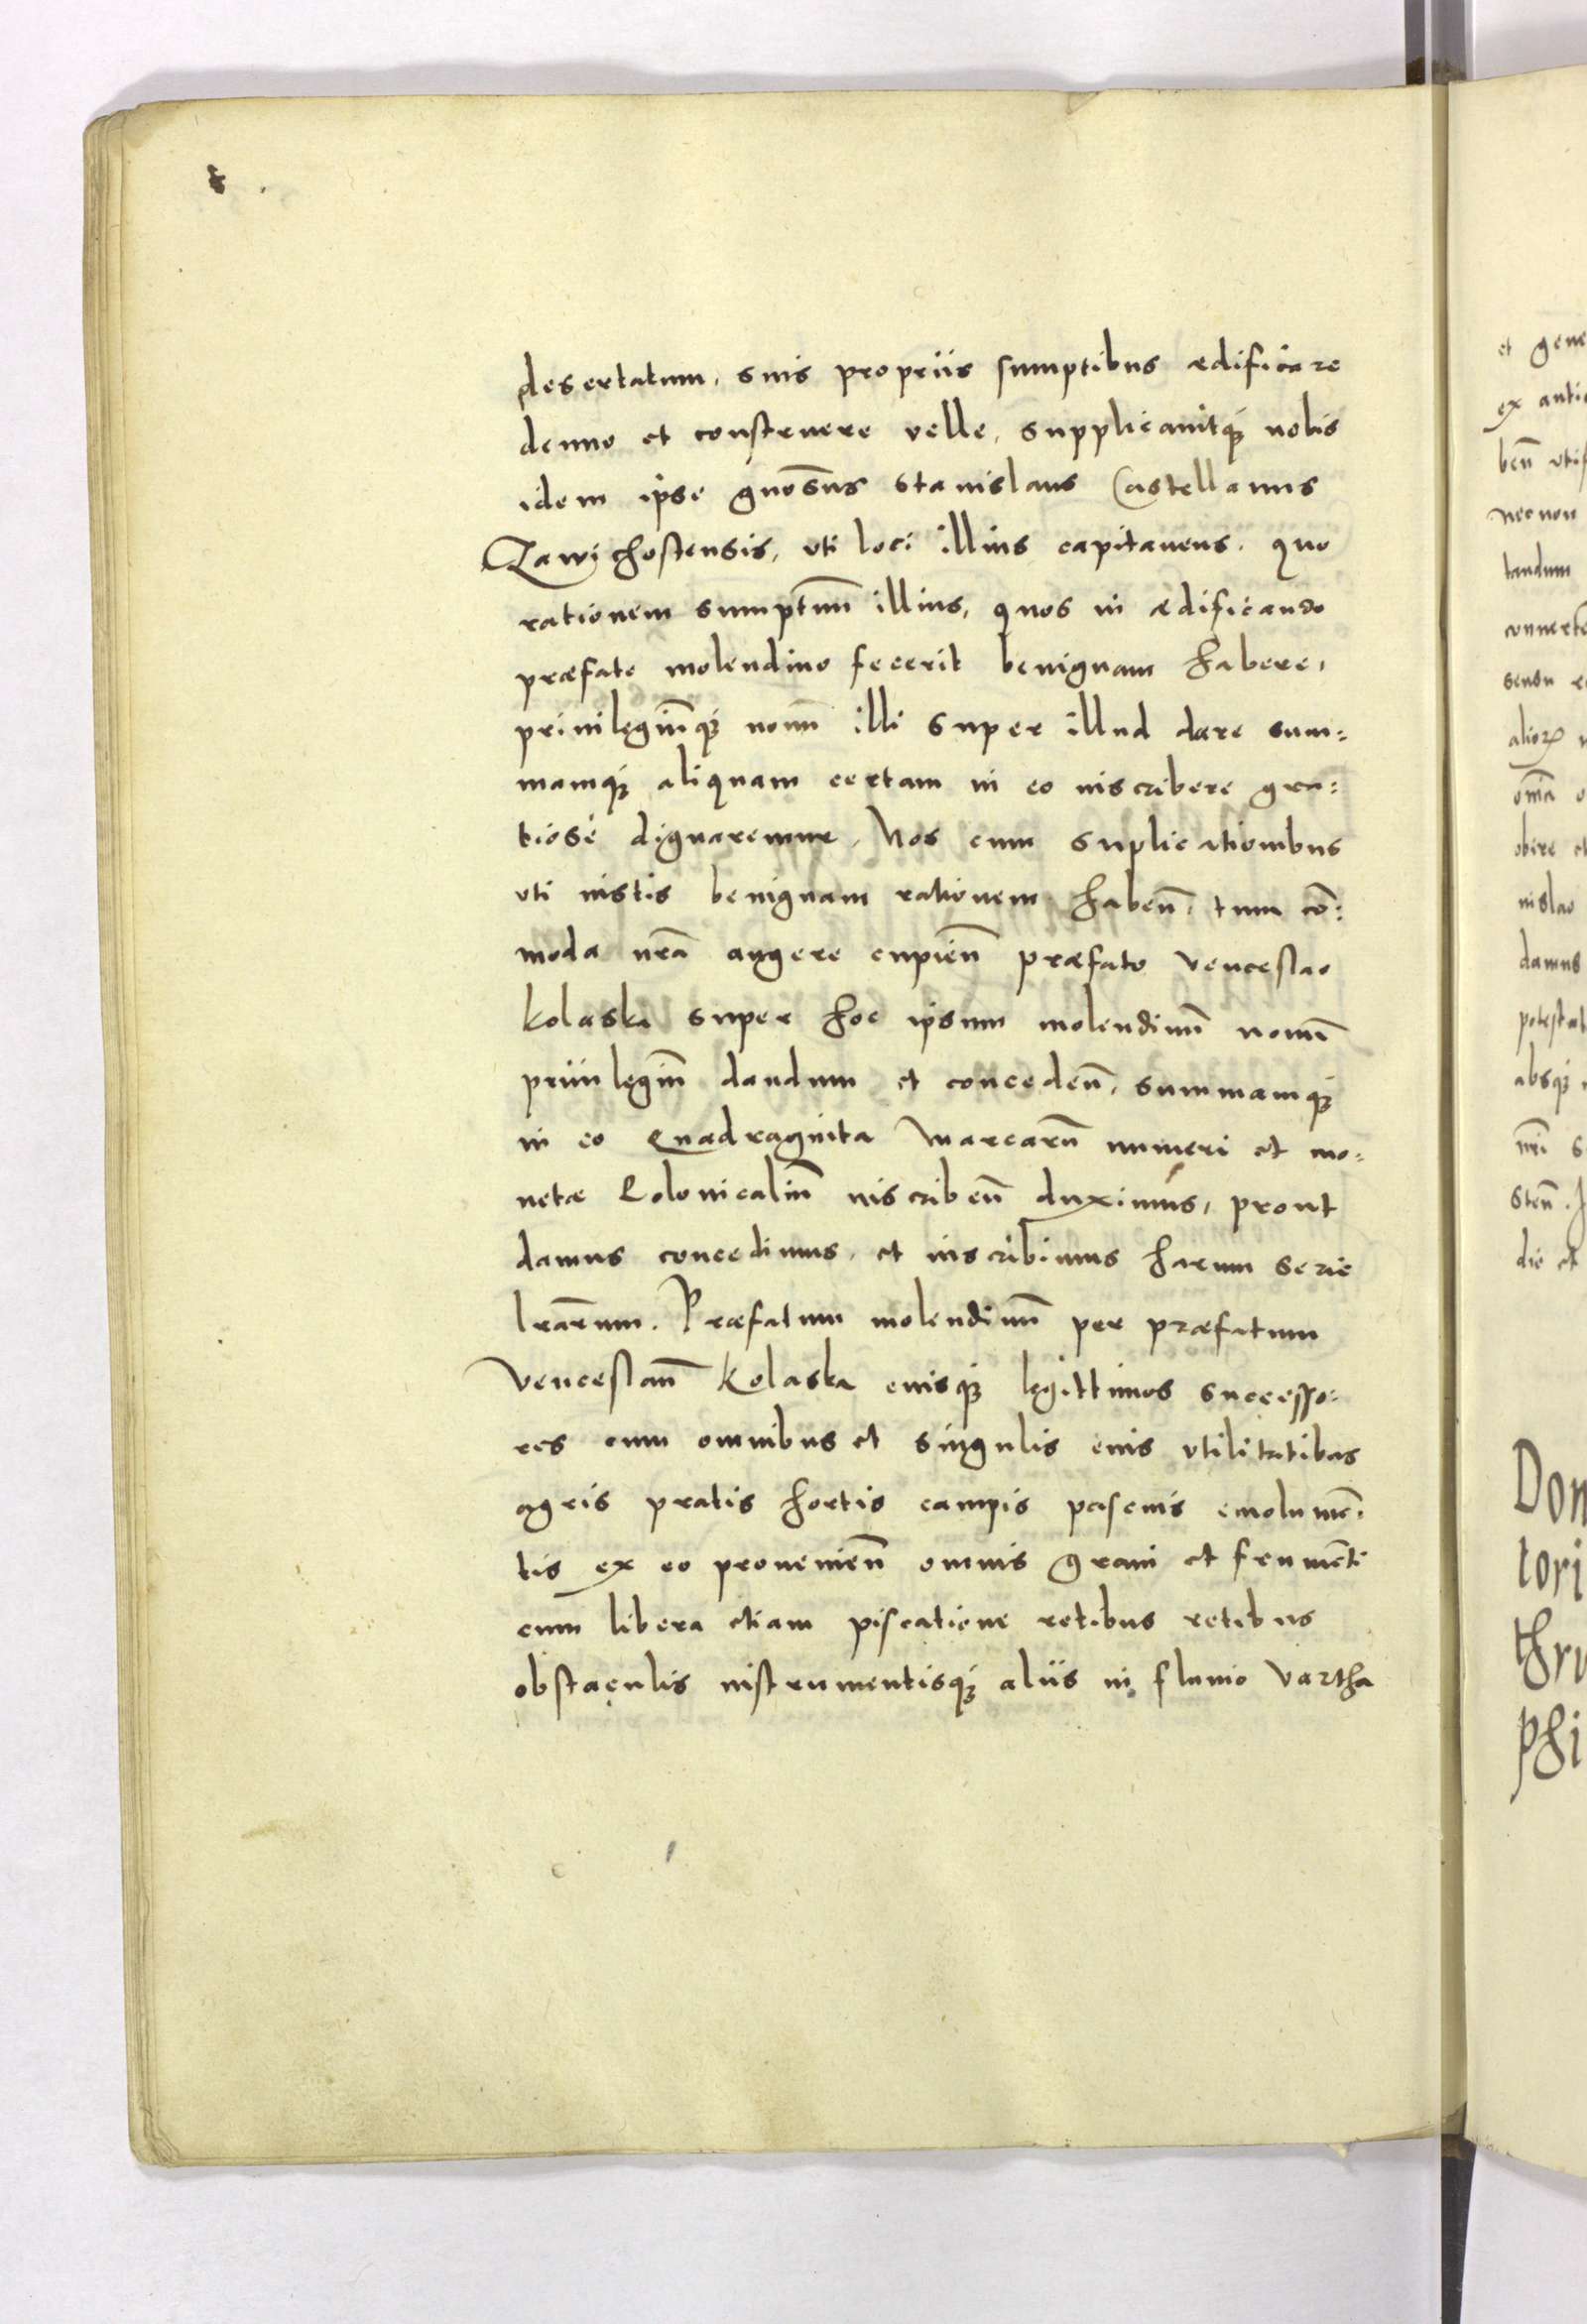 desertatum, suis propriis sumptibus ædificare
denuo et construere velle, supplicauitqȝ nobis
idem ipse gnōsus Stanislaus Castellanus
Zawichostensis, vti loci illius capitaneus, quo
rationem sumptūm illius, quos in ædificando
præfato molendino fecerit benignam habere,
priuilegiūqȝ nouū illi super illud dare sum=
mamqȝ aliquam certam in eo inscribere gra=
tiosè dignaremur. Nos eum suplicationibus
vti iustis benignam rationem habeñ, tum cō=
moda nrā augere cupieñ præfato Venceslao
Kolaska super hoc ipsum molendinū nouū
priuilegiū dandum et concedeñ, summamqȝ
in eo Quadraginta Marcarū numeri et mo=
netæ Polonicaliū inscribeñ duximus, prout
damus concedimus, et inscribimus harum serie
lrārum. Præfatum molendinū per præfatum
Venceslaū Kolaska eiusqȝ legittimos successo=
res cum omnibus et singulis eius vtilitatibus
agris pratis hortis campis pascuis emolumē=
tis ex eo prouenieñ omnis grani et frumēti
cum libera etiam piscatione retibus retibus
obstaculis instrumentisqȝ aliis in fluuio Vartha
et gene
ex anti
beñ vti
necnon
tandum
conuerte
seńdu
alioꝝ
omīa
obire et
nislao
damus
potestat
absqȝ
nrī s
steñ.
die et
Don
tori
thru
phi